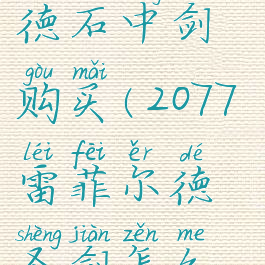 德石中剑
gòu mǎi
购买(2077
léi fēi ěr dé
雷菲尔德
shèng jiàn zěn me
圣剑怎么